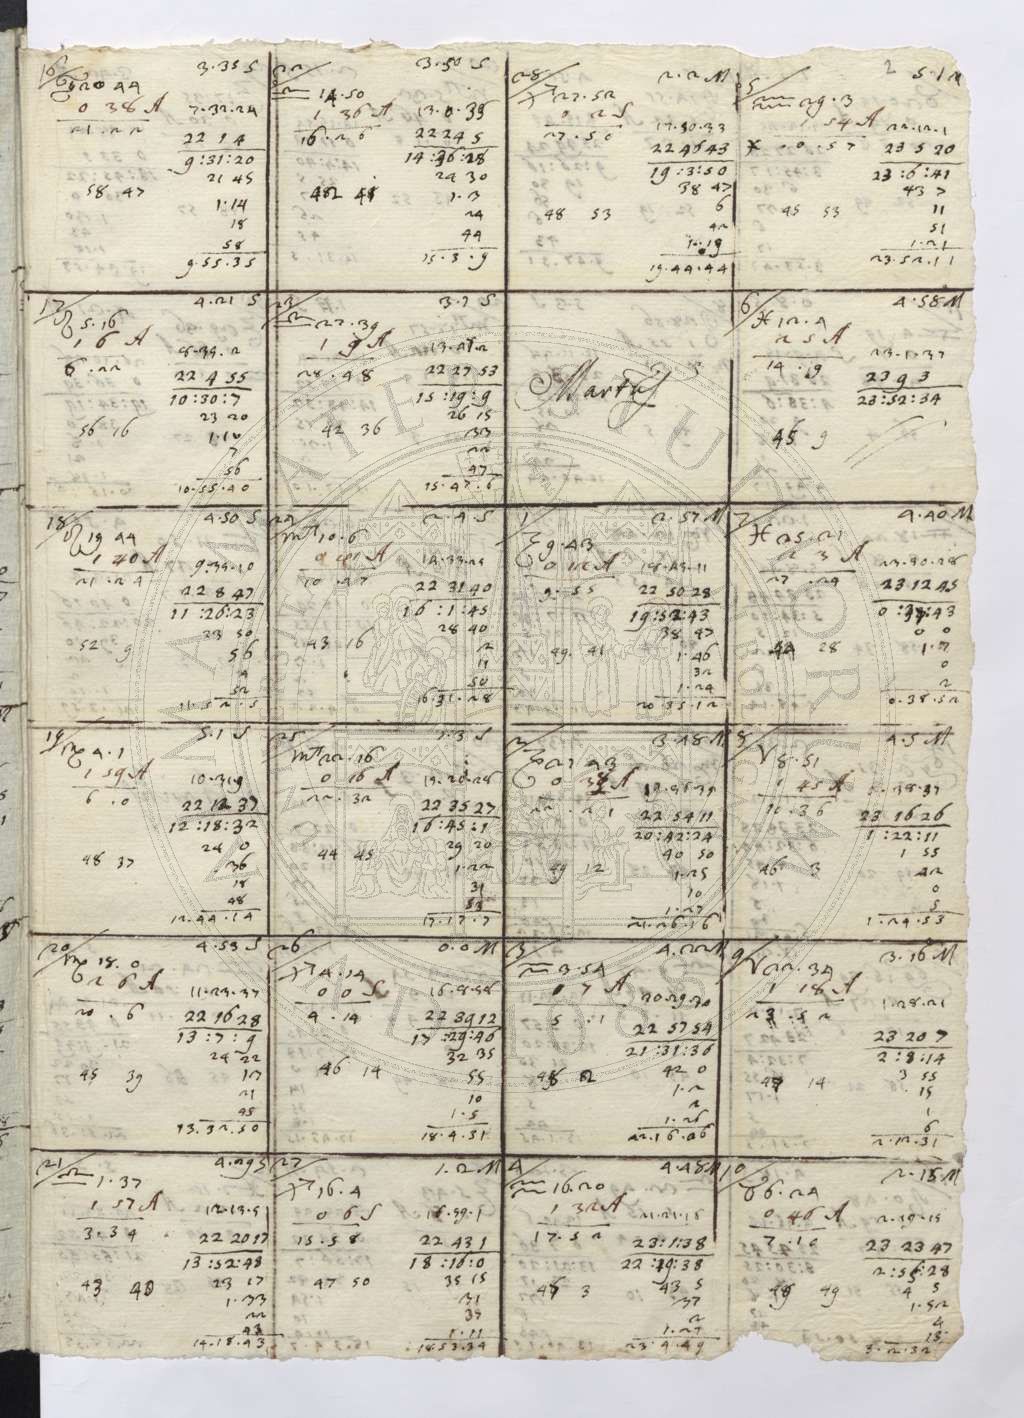 16/ 3.35 S
♋ 20 44
0 38 A 7.32.24
21.22
22 1 4
9:31:20
58 47 21 45
1:14
18
58
9.55.35
17/ 4.21 S
♌ 5.16
1 6 A 8.39.2
6.22
22 4 55
10:30:7
56 16 23 20
1:10
7
56
10.55.40
18/ 4.50 S
♌ 19 44
1 40 A 9.39.10
21.24
22 8 47
11:26:23
52 9 23 50
56
4
52
11.52.5
19/ 5.1 S
♍ 4.1
1 59 A 10.31.9
6.0
22 12 37
12:18:32
48 37 24 0
36
18
48
12.44.14
20/ 4.53 S
♍ 18.0
2 6 A 11.23.37
20.6
22 16 28
13:7:9
45 39 24 22
17
21
45
13.32.50
21/ 4.29 S
♎ 1.37
1 57 A 12.13.51
3.34
22 20 17
13:52:48
43 40 23 17
1.33
22
43
14.18.43
22/ 3.50 S
♎ 14.50
1 36 A 13.0.35
16.26
22 24 5
14:36:28
42 48 24 30
1.3
24
44
15.3.9
23/ 3.7 S
♎ 27.39
1 9 A 13.47.2
28.48
22 27 53
15:19:9
42 36 26 15
33
22
47
15.47.6
24/ 2.4 S
♏ 10.6
14.33.24
10.47
22 31 40
16:1:45
43 16 28 40
2
11
50
16.31.28
25/ 1.3 S
♏ 22.16
0 16 A 15.20.28
22.32
22 35 27
16:45:1
44 45 29 20
1.22
31
53
17.17.7
26/ 0.0 M
♐ 4.14
0 0 S 16.8.58
4.14
22 39 12
17:29:46
46 14 32 35
55
10
1.5
18.4.31
27/ 1.2 M
♐ 16.4
0 6 S 16.59.1
15.58
22 43 1
18:16:0
47 50 35 15
31
39
1.11
18.53.34
28/ 2.2 M
♐ 27.52
0 2 S 17.50.33
27.50
22 46 43
19:3:50
48 53 38 47
6
42
1.19
19.44.44
Martius
1/ 2.57 M
♑ 9.43
0 12 A 18.43.11
9.55
22 50 28
19:52:43
49.41 38 47
1.46
32
1.24
20.35.12
2/ 3.48 M
♑ 21 43
19.35.39
22.21
22 54 11
20:42:24
49 12 40 50
1.25
10
1.27
21.26.16
3/ 4.22 M
♒ 3.54
0 7 A 20.29.30
5.1
22 57 54
21:31:36
48 2 42 0
1.2
2
1.26
22.16.26
4/ 4.48 M
♒ 16.20
1 32 A 21.21.15
17.52
23:1:38
22:19:38
46 3 43 5
37
2
1.27
23.4.49
2
5/ 5.1 M
♒ 29.3
54 A 22.12.1
♓ 0.57 23 5 20
23:6:41
45 53 43 7
11
51
1.21
23.52.11
6/ 4.58 M
♓ 12.4
2 5 A 23.1.37
14.19
23 9 3
23:52:34
45 9
7/ 4.40 M
♓ 25.21
2 3 A 23.50.28
27.24
23 12 45
0:39:43
44 28 0 0
1.7
0
2
0.38.52
8/ 4.5 M
♈ 8.51
1 45 A 38.37
10.36
23 16 26
1:22:11
46 3 1 55
42
0
5
1.24.53
9/ 3.16 M
♈ 22.34
1 18 A 1.28.21
23.52
23 20 7
2:8:14
47 14 3 55
15
1
6
2.12.31
10/ 2.18 M
♉ 6.24
0 46 A 2.19.15
7.10
23 23 47
2:55:28
48 49 4 5
1.52
4
15
3.2.32